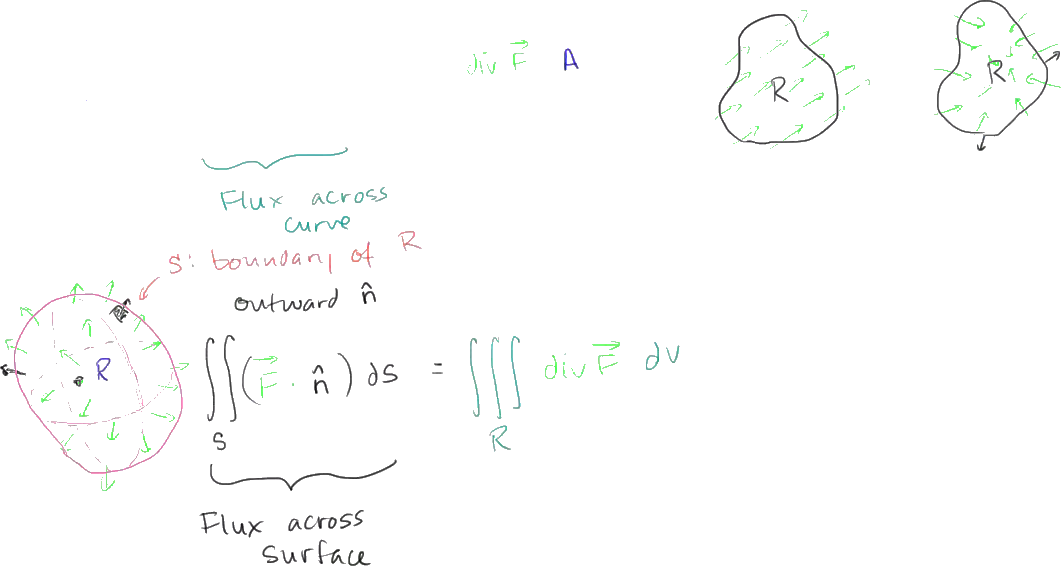 div F⃗ A
R
R
Flux across
curve
S: boundary of R
outward n̂
R
∬_S (F⃗ · n̂) dS = ∭_R div F⃗ dV
Flux across
surface